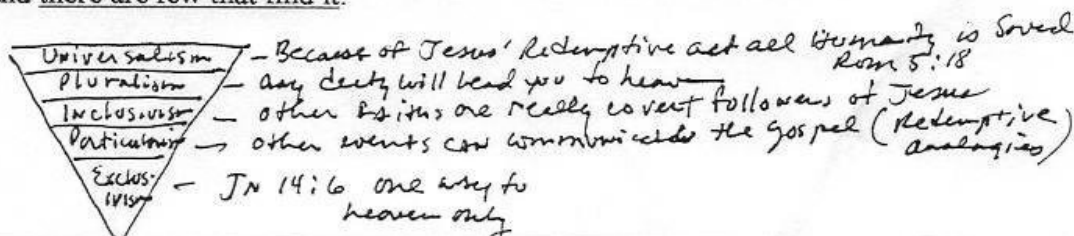 and there are few that find it.
Universalism – Because of Jesus' Redemptive act all Humanity is Saved
Rom 5:18
Pluralism – any deity will lead you to heaven
Inclusivism – other faiths are really covert followers of Jesus
Particularism → other events can communicate the gospel (Redemptive analogies)
Exclus-
ivism – JN 14:6 one way to
heaven only